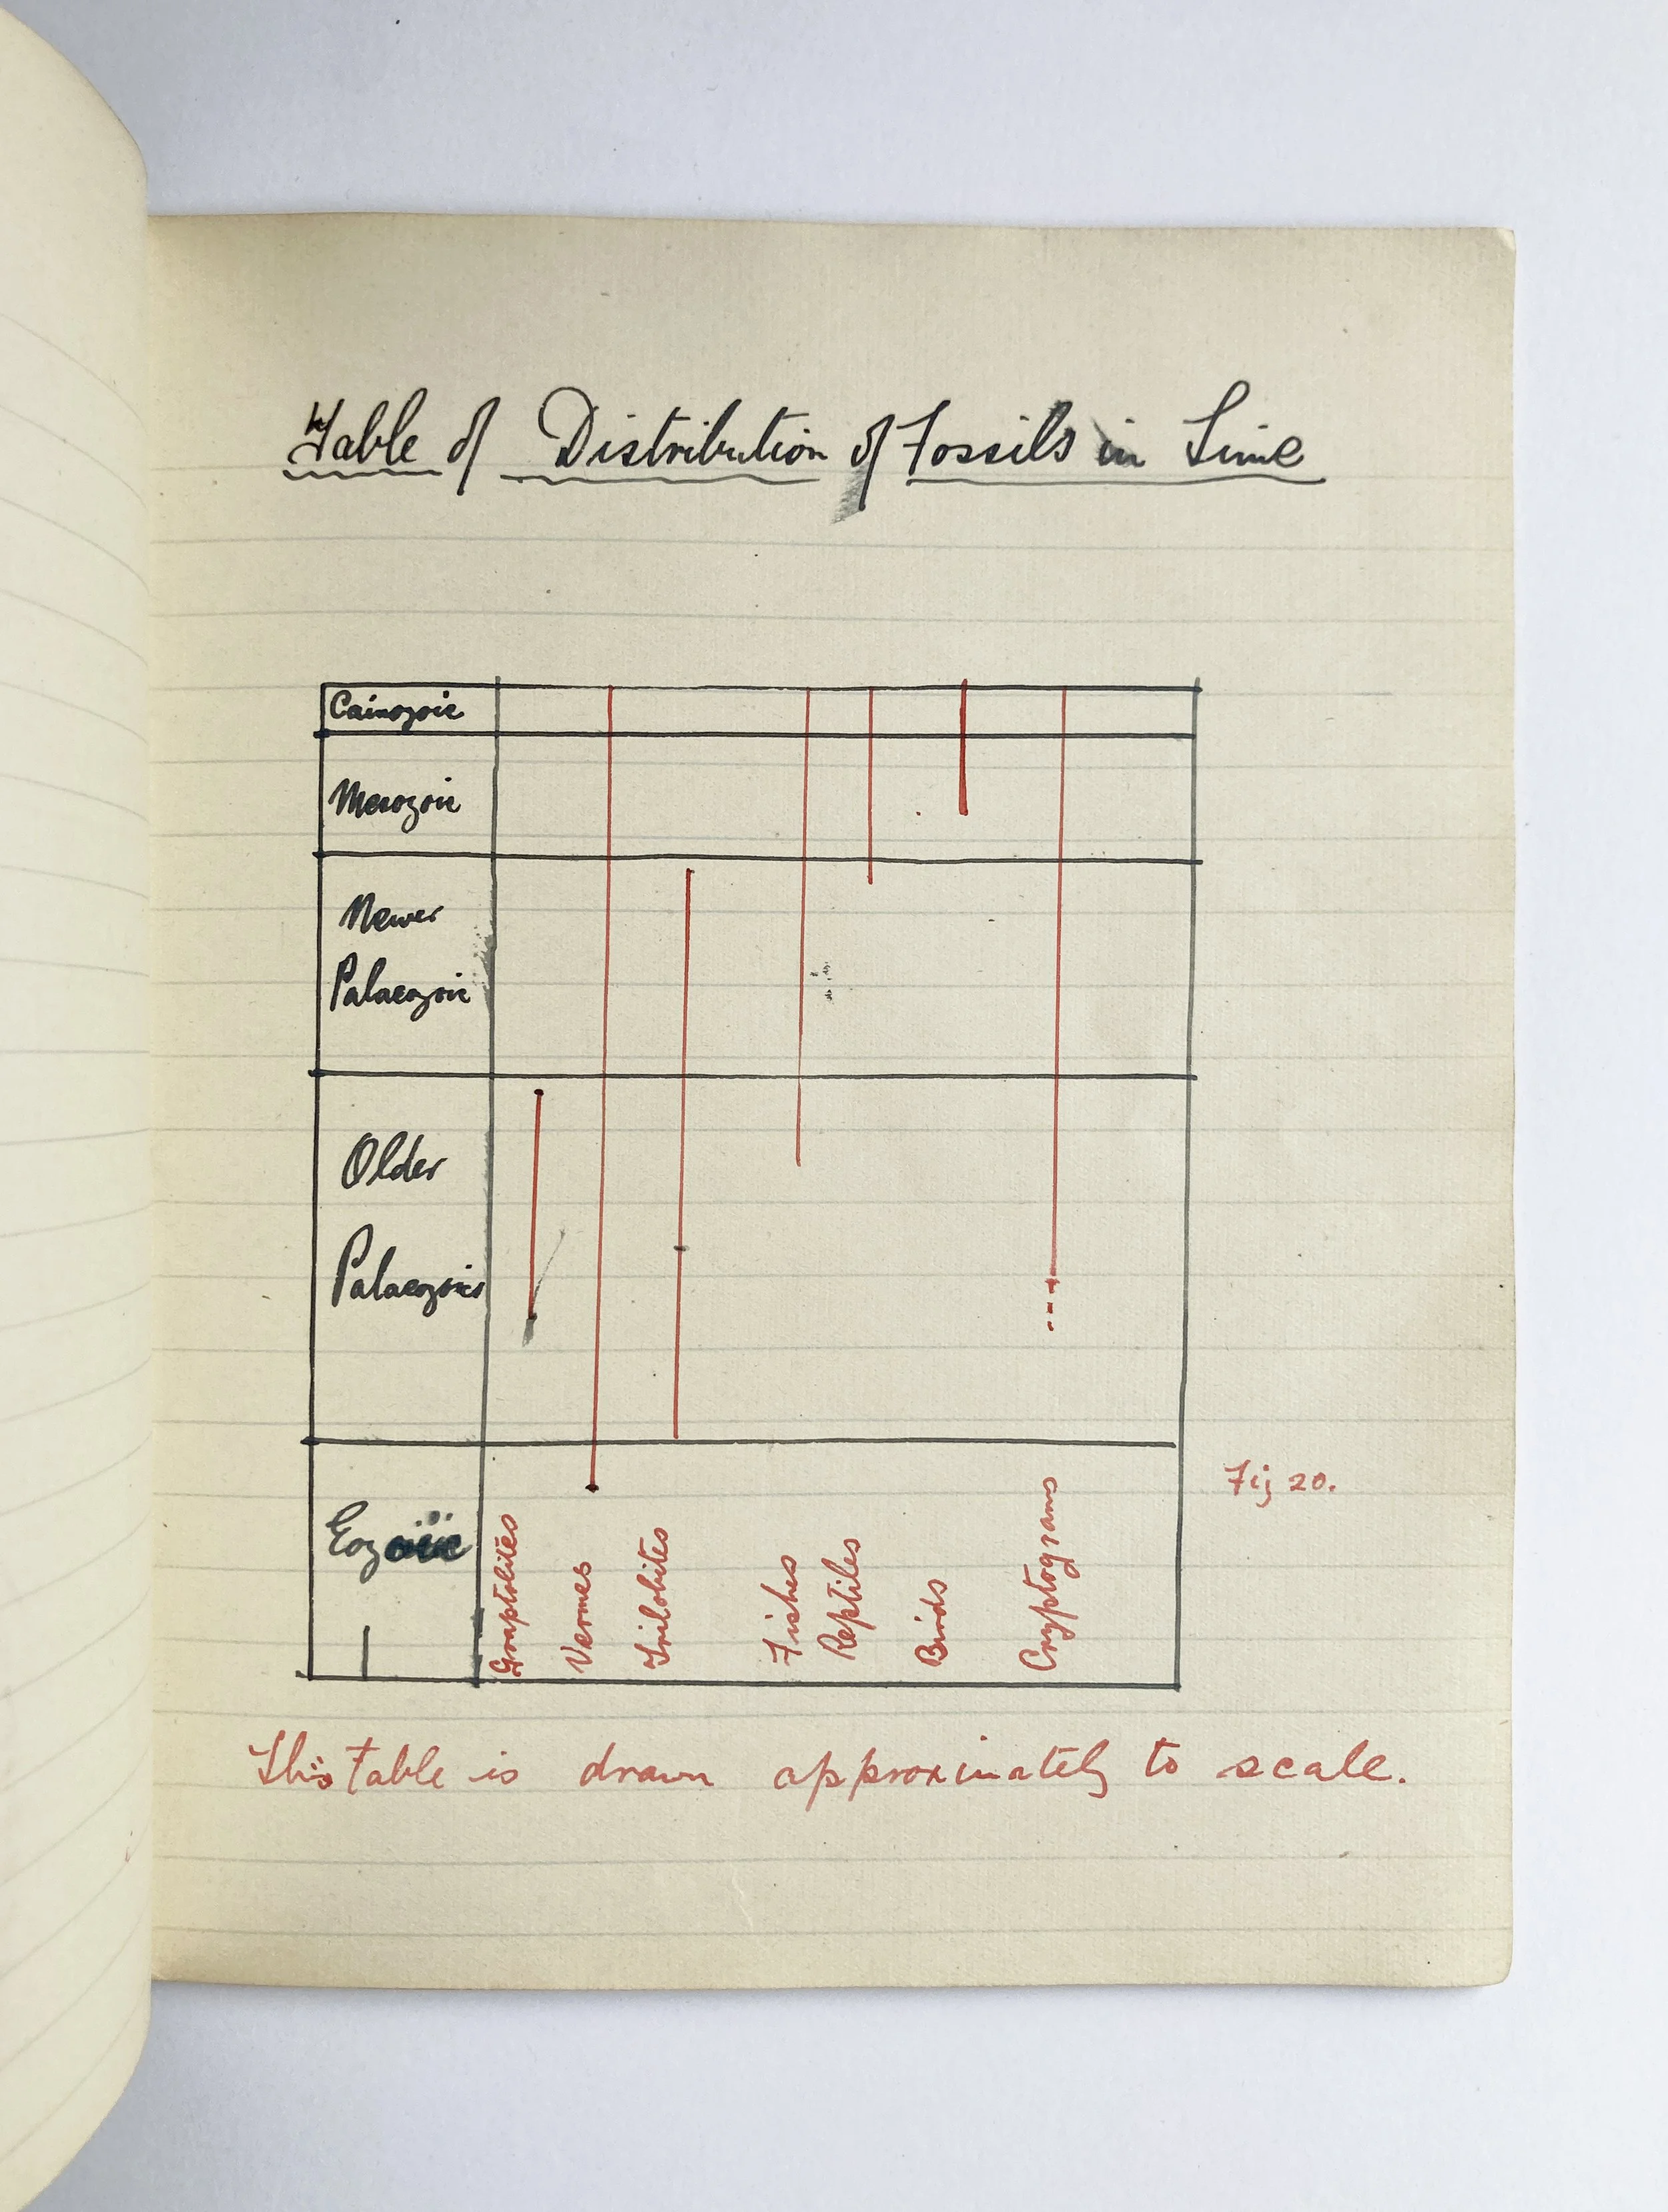 Table of Distribution of Fossils in Time
Cainozoic
Mesozoic
Newer
Palaeozoic
Older
Palaeozoic
Eozoic
Graptolites
Vermes
Trilobites
Fishes
Reptiles
Birds
Cryptograms
Fig 20.
This Table is drawn approximately to scale.